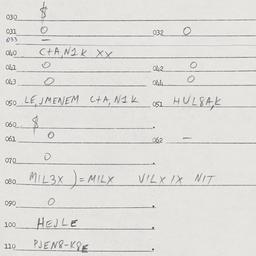 030 $
031 0 032 0
033 —
040 C+A,N1K XX
041 0 042 0
043 0 044 0
050 LE,JMENEM C+A,N1K 051 HUL8A,K
060 $
061 0 062 —
070 0
080 MIL3X )=MILX VILX IX NIT
090 0
100 HEJLE
110 PJEN8-K8E